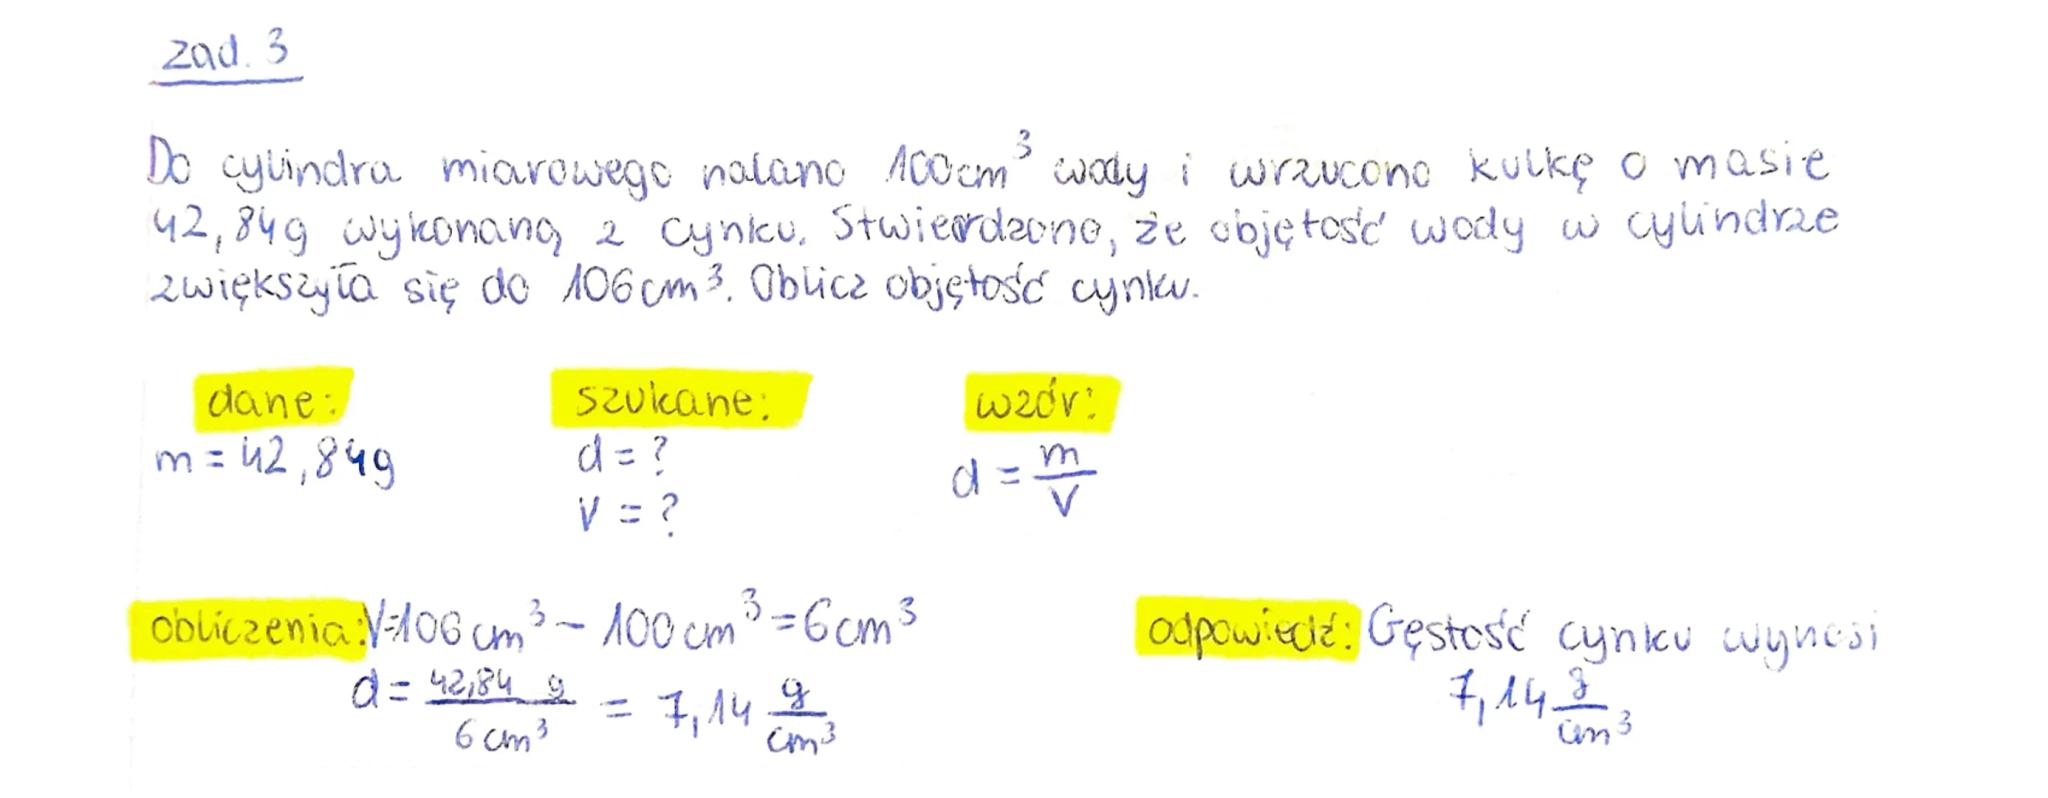 zad. 3
Do cylindra miarowego nalano 100cm³ wody i wrzucono kulkę o masie
42,84g wykonaną z cynku. Stwierdzono, że objętość wody w cylindrze
zwiększyła się do 106cm³. Oblicz objętość cynku.
dane: szukane: wzór:
m = 42,84g d = ? d = m/V
V = ?
obliczenia: V=106cm³ - 100cm³ = 6cm³ odpowiedź: Gęstość cynku wynosi
d = 42,84 g / 6cm³ = 7,14 g/cm³ 7,14 g/cm³